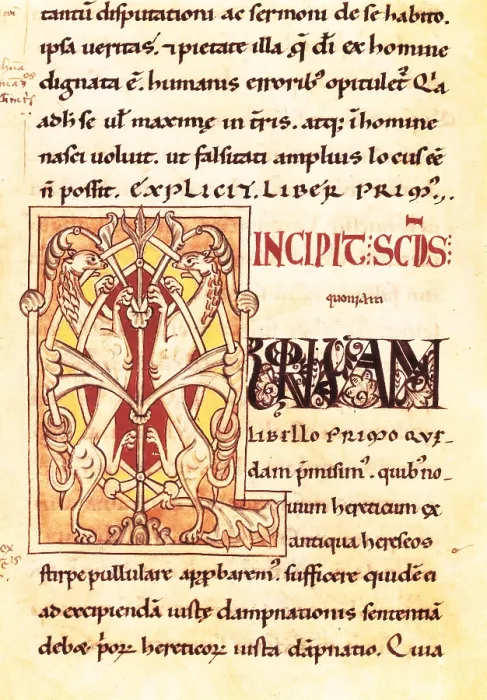 tantū disputationi ac sermoni de se habito.
ipsa ueritas. ⁊ pietate illa q̄ d̄i ex homine
dignata ē. humanis erroribꝰ opitulet᷑ Q̄a
adh̄ se ul̄ maxime in t̄ris. atq; ī homine
nasci uoluit. ut falsitati amplius locus eē
n̄ possit. EXPLICIT. LIBER PRIMꝰ.,.
INCIPIT: SCD̄S:
quoniam
libello PRIMO QUE-
dam p̄misimꝰ. quibꝰ no-
uum hereticum ex
antiqua hereseos
stirpe pullulare app̱baremꝰ. sufficere quidē ei
ad excipiendā iustę dampnationis sententiā
debꝫ p̓oꝝ hereticoꝝ iusta dāpnatio. Quia